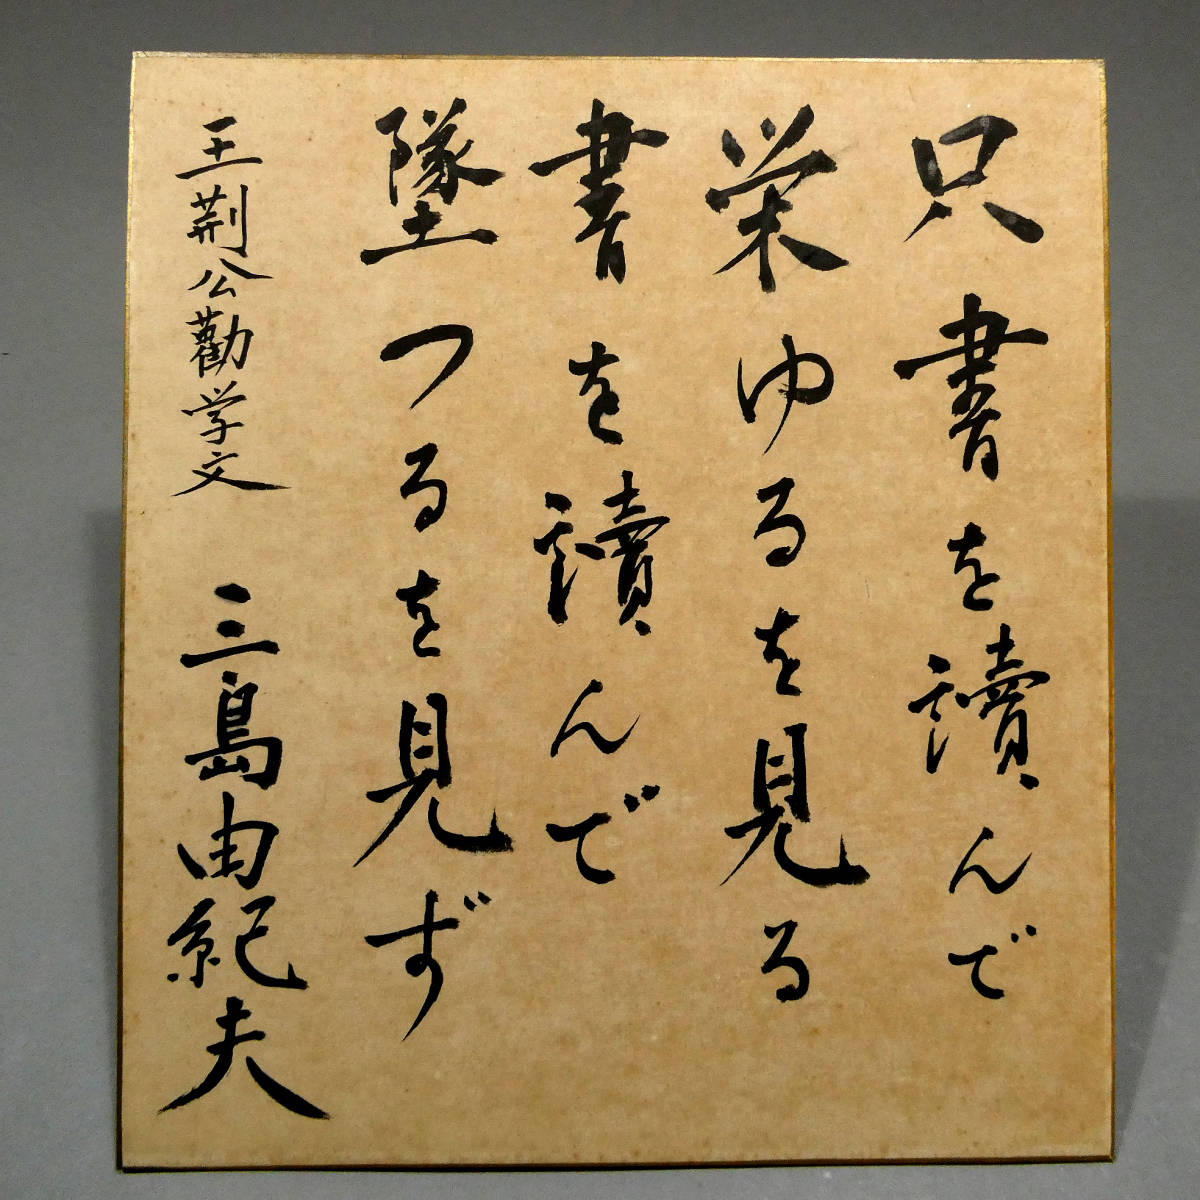 只書を讀んで
栄ゆるを見る
書を讀んで
墜つるを見ず
王荆公勸学文
三島由紀夫